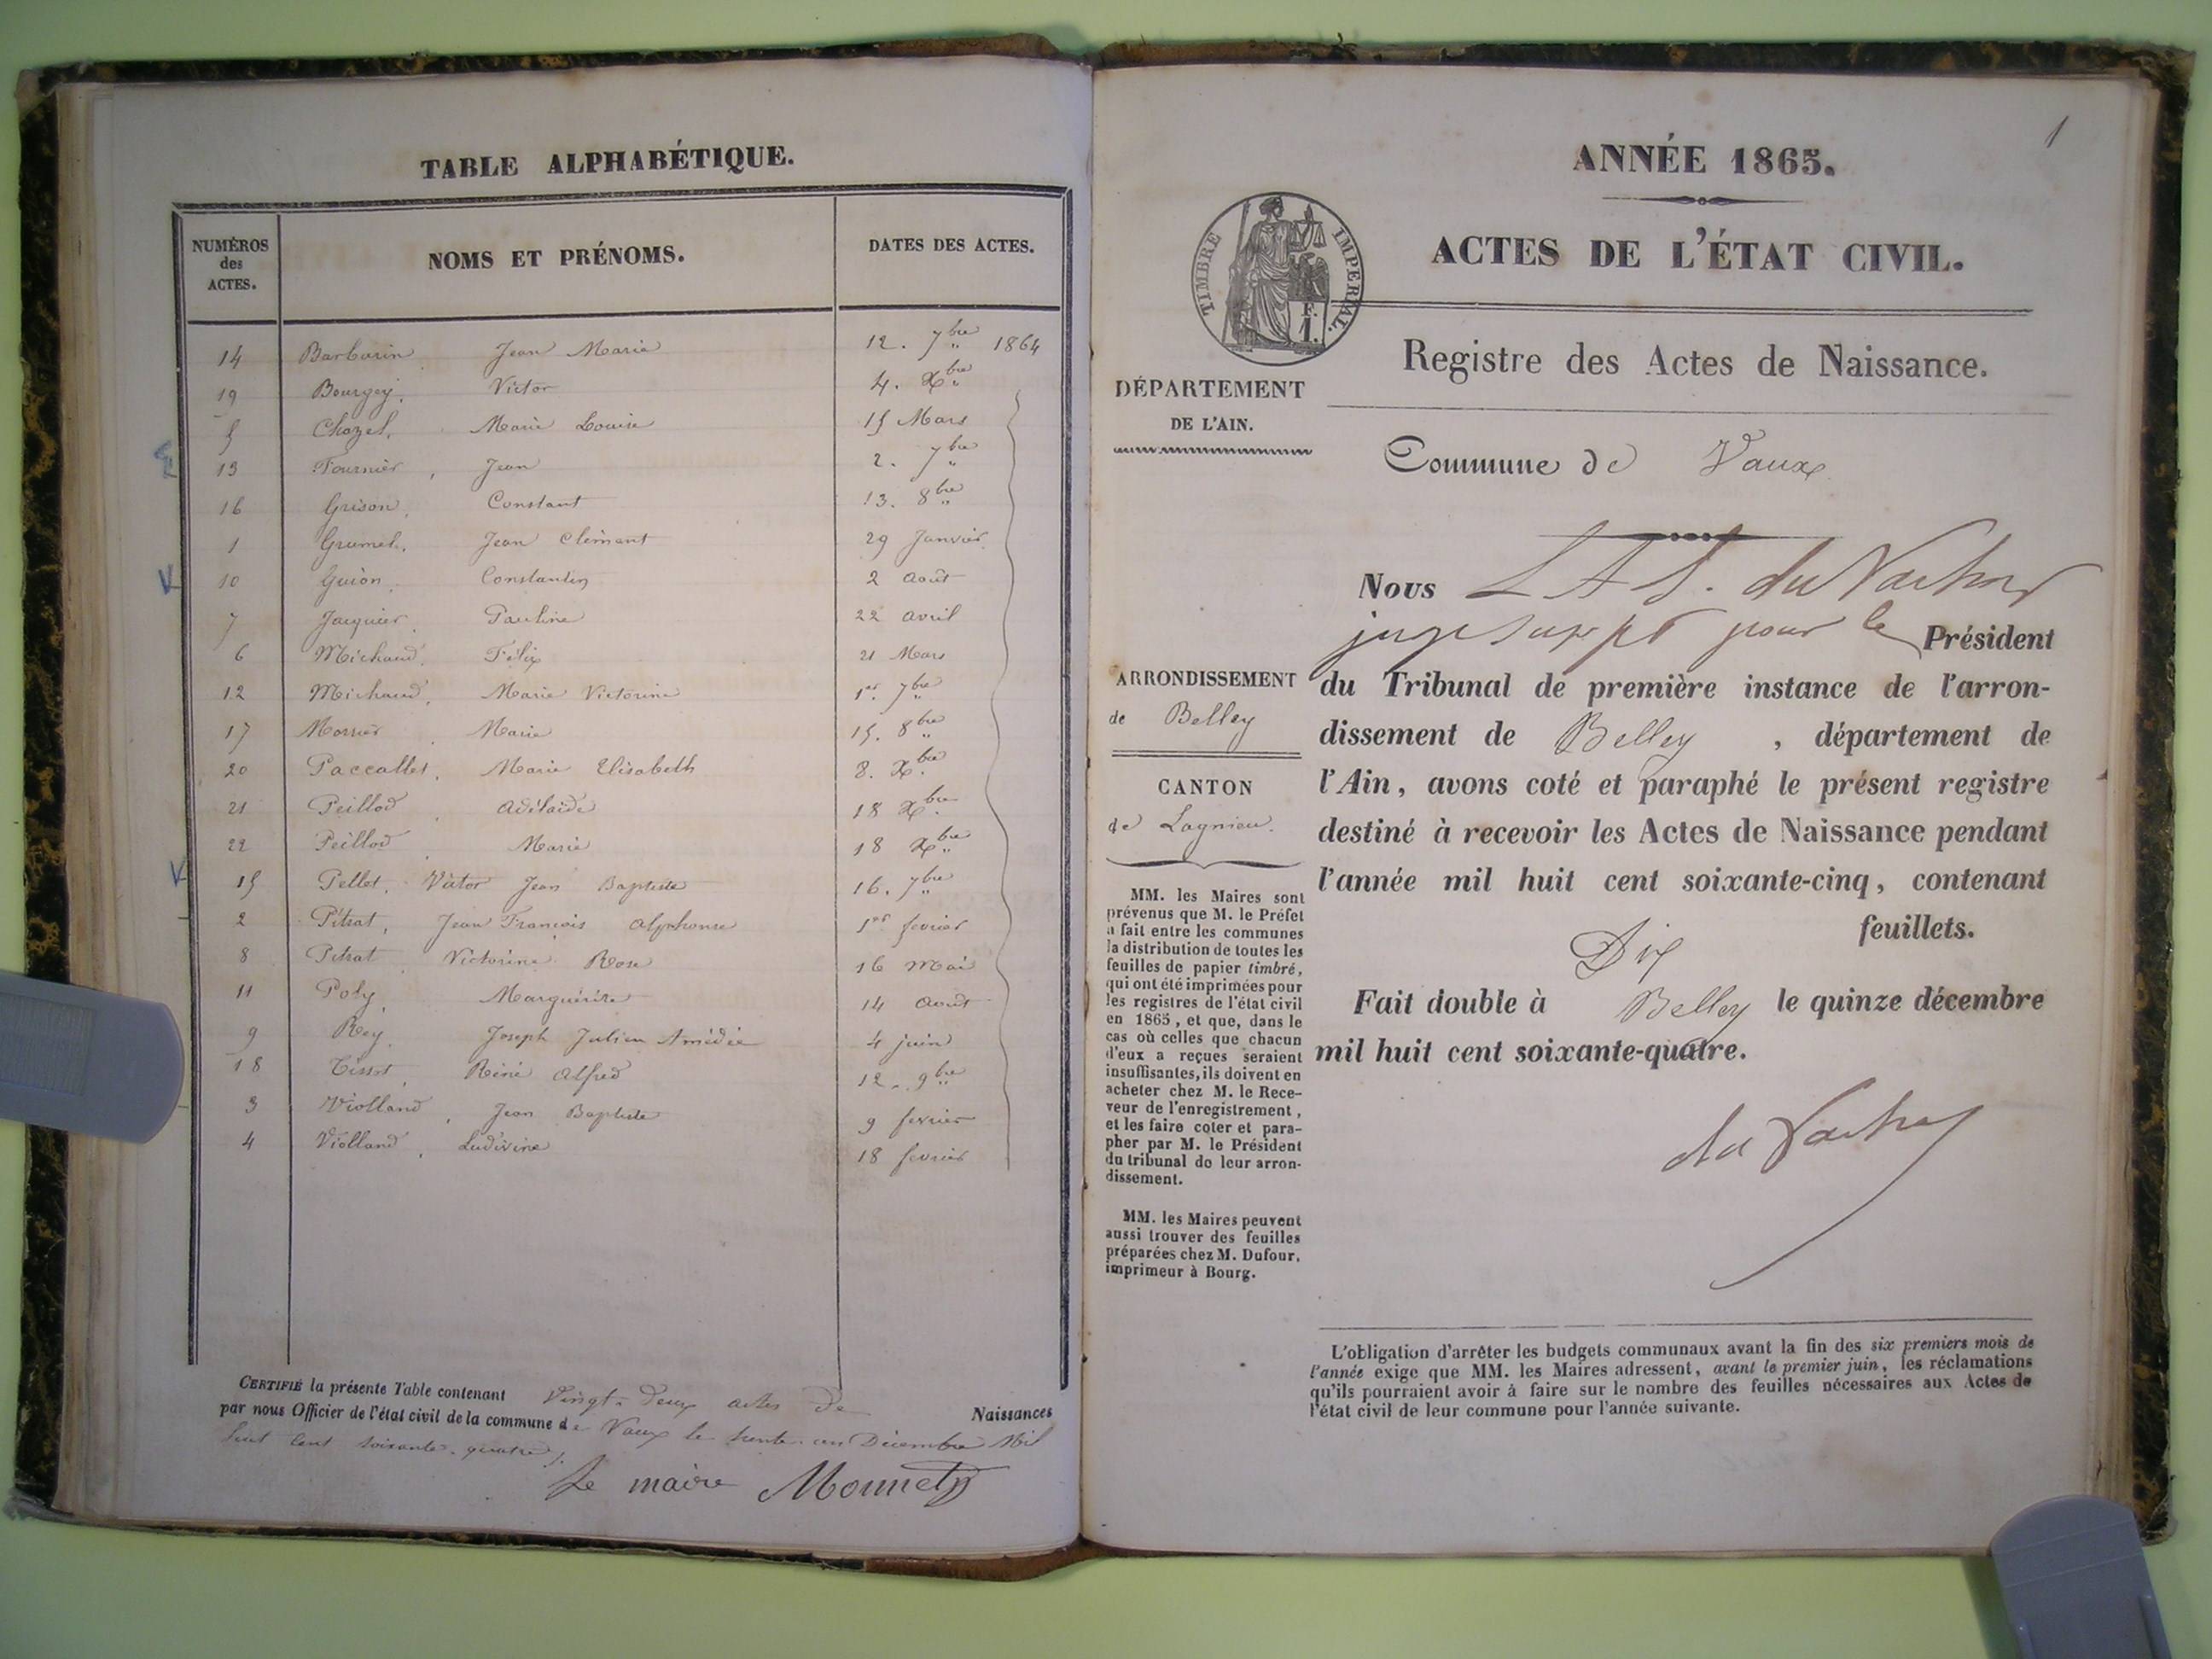 TABLE ALPHABÉTIQUE.
NUMÉROS des ACTES. NOMS ET PRÉNOMS. DATES DES ACTES.
14 Barbarin Jean Marie 12. 7bre 1864
19 Bourgey, Victor 4. Xbre
5 Chazel, Marie Louise 15 Mars
13 Fournier, Jean 2. 7bre
16 Grison, Constant 13. 8bre
1 Grumel, Jean Clément 29 Janvier
10 Guion Constantin 2 août
7 Jacquier, Pauline 22 avril
6 Michaud, Félix 21 Mars
12 Michaud, Marie Victorine 1er 7bre
17 Marie 15. 8bre
20 Paccallet, Marie Elisabeth 8. Xbre
21 Peillod, Adélaïde 18 Xbre
22 Peillod, Marie 18 Xbre
15 Pellet, Victor Jean Baptiste 16. 7bre
2 Pitrat, Jean François Alphonse 1er fevrier
8 Pitrat, Victorine Rose 16 Mai
11 Poly, Marguérite 14 Août
9 Rey, Joseph Julien Amédée 4 juin
18 Tissot, Réné Alfred 12. 9bre
3 Violland, Jean Baptiste 9 fevrier
4 Violland, Ludivine 18 fevrier
CERTIFIÉ la présente Table contenant Vingt-deux actes de Naissances
par nous Officier de l'état civil de la commune de Vaux le trente-un Décembre Mil
huit cent soixante-quatre.
Le maire Monnet
1
ANNÉE 1865.
ACTES DE L'ÉTAT CIVIL.
TIMBRE IMPERIAL.
F. 1.
Registre des Actes de Naissance.
DÉPARTEMENT
DE L'AIN.
Commune de Vaux
ARRONDISSEMENT
de Belley
CANTON
de Lagnieu.
MM. les Maires sont
prévenus que M. le Préfet
a fait entre les communes
la distribution de toutes les
feuilles de papier timbré,
qui ont été imprimées pour
les registres de l'état civil
en 1865, et que, dans le
cas où celles que chacun
d'eux a reçues seraient
insuffisantes, ils doivent en
acheter chez M. le Rece-
veur de l'enregistrement,
et les faire coter et para-
pher par M. le Président
du tribunal de leur arron-
dissement.
MM. les Maires peuvent
aussi trouver des feuilles
préparées chez M. Dufour,
imprimeur à Bourg.
Nous
juge pour le Président
du Tribunal de première instance de l'arron-
dissement de Belley, département de
l'Ain, avons coté et paraphé le présent registre
destiné à recevoir les Actes de Naissance pendant
l'année mil huit cent soixante-cinq, contenant
Dix feuillets.
Fait double à Belley le quinze décembre
mil huit cent soixante-quatre.
L'obligation d'arrêter les budgets communaux avant la fin des six premiers mois de
l'année exige que MM. les Maires adressent, avant le premier juin, les réclamations
qu'ils pourraient avoir à faire sur le nombre des feuilles nécessaires aux Actes de
l'état civil de leur commune pour l'année suivante.